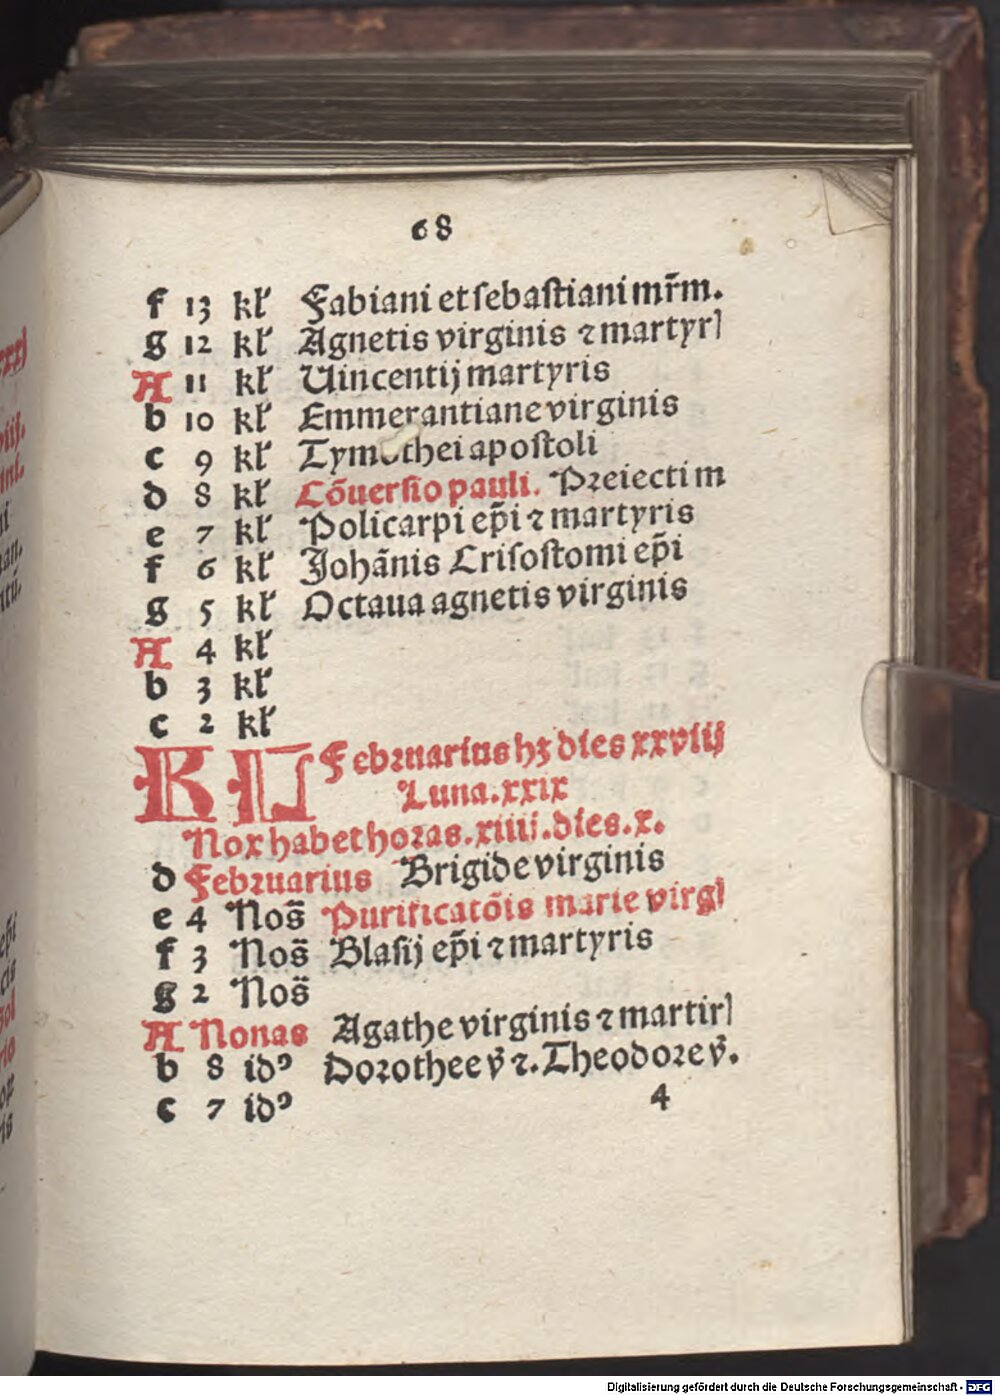 68
f 13 kl̕ Fabiani et sebastiani mr̄m.
g 12 kl̕ Agnetis virginis ⁊ martyrꝭ
A 11 kl̕ Uincentij martyris
b 10 kl̕ Emmerantiane virginis
c 9 kl̕ Tymothei apostoli
d 8 kl̕ Cōuersio pauli. Preiecti m
e 7 kl̕ Policarpi ep̄i ⁊ martyris
f 6 kl̕ Johānis Crisostomi ep̄i
g 5 kl̕ Octaua agnetis virginis
A 4 kl̕
b 3 kl̕
c 2 kl̕
KL Februarius hꝫ dies xxviij
Luna. xxix
Nox habet horas. xiiij. dies. x.
d Februarius Brigide virginis
e 4 Nos̄ Purificatōis marie virgꝭ
f 3 Nos̄ Blasij ep̄i ⁊ martyris
g 2 Nos̄
A Nonas Agathe virginis ⁊ martirꝭ
b 8 idꝰ Dorothee v̄ ⁊. Theodore v̄.
c 7 idꝰ 4
Digitalisierung gefördert durch die Deutsche Forschungsgemeinschaft - DFG